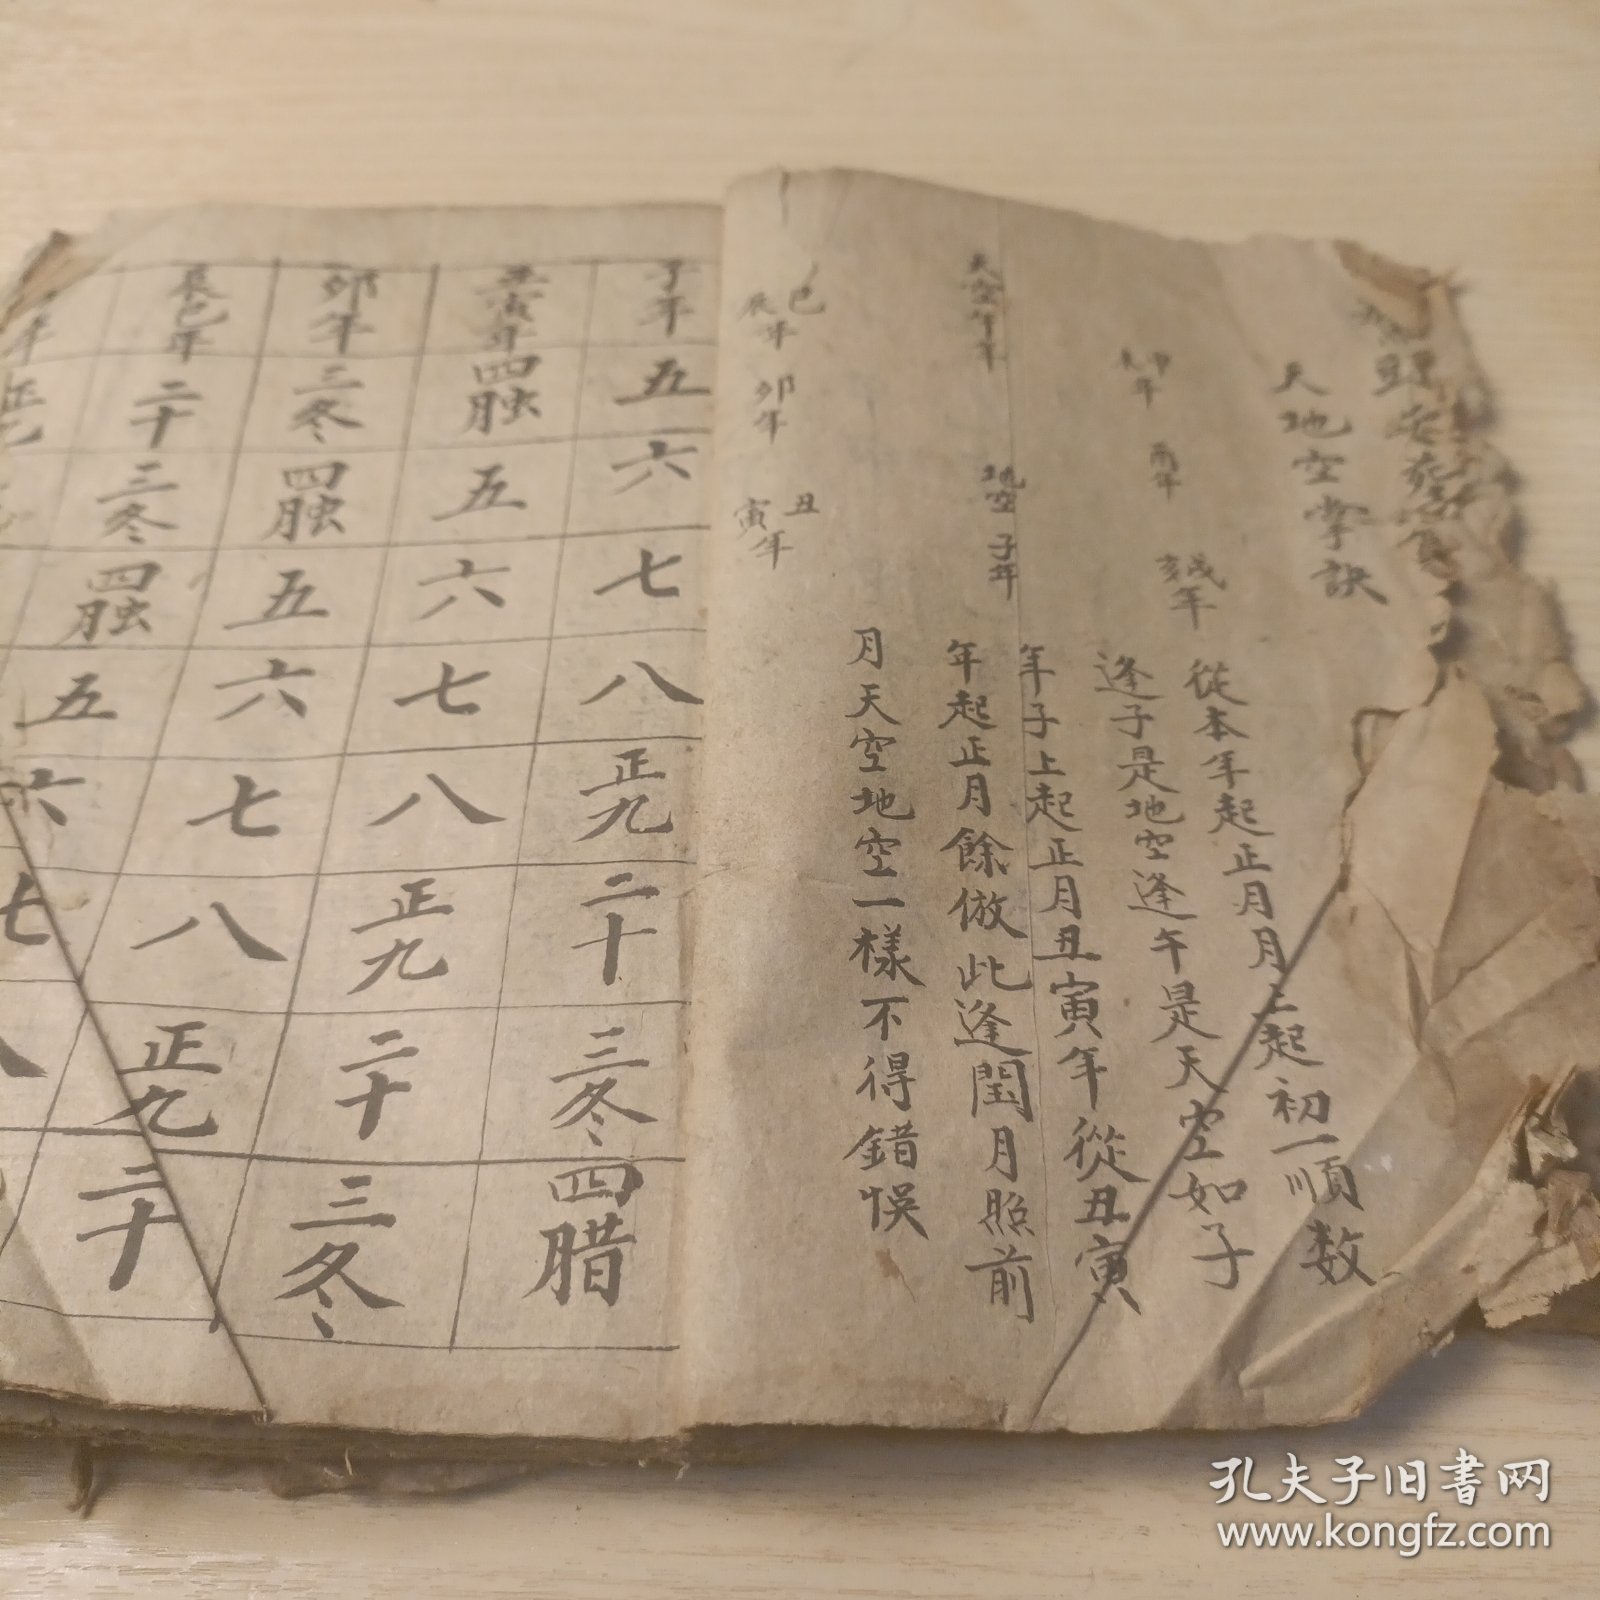 天地空掌訣
申
未年
酉年
戌
亥年
從本年起正月月上起初一順数
逢子是地空逢午是天空如子
年子上起正月丑寅年從丑寅
年起正月餘倣此逢閏月照前
月天空地空一樣不得錯悞
天空午年
地空子年
巳
辰年
卯年
丑
寅年
子年 五 六 七 八 正九 二十 三冬 四腊
丑寅年 四䏽 五 六 七 八 正九 二十 三冬
卯年 三冬 四䏽 五 六 七 八 正九 二十
辰巳年 二十 三冬 四䏽 五 六 七 八
年 正九 五 六 七 八
孔夫子旧书网
www.kongfz.com